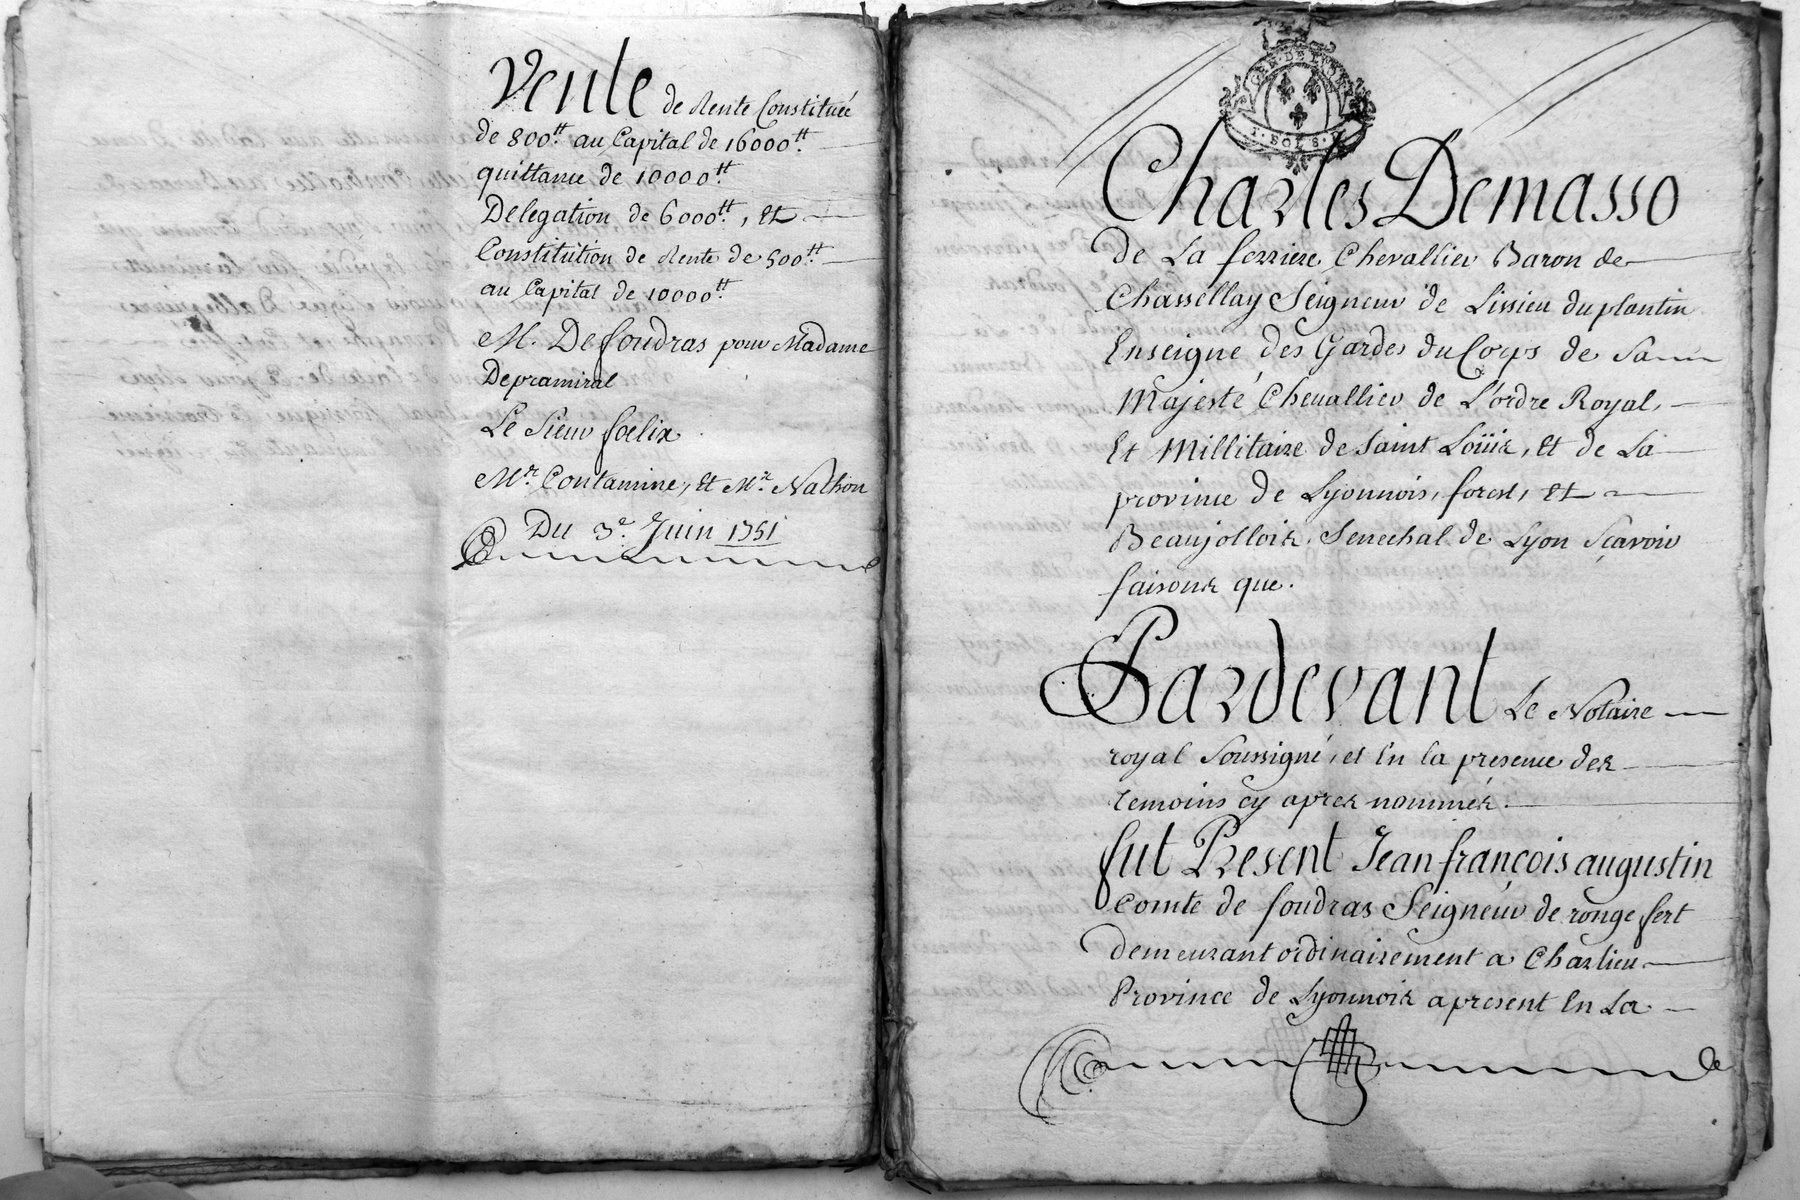 Vente de Rente Constituée
de 800ᵗᵗ. au Capital de 16000ᵗᵗ.
quittance de 10000ᵗᵗ.
Delegation de 6000ᵗᵗ, Et
Constitution de Rente de 500ᵗᵗ.
au Capital de 10000ᵗᵗ.
M. De foudras pour Madame
De pramiral
Le Sieur foelix
Mʳ. Contamine, Et Mʳ. Nathon
Du 3ᵉ. Juin 1751
GEN. DE LYON
I. SOLS.
Charles Demasso
de La ferriere Chevallier Baron de
Chassellay Seigneur de Lissieu du plantin
Enseigne des Gardes du Corps de Sa
Majesté Chevallier de L'ordre Royal,
Et Millitaire de Saint Loüis, Et de La
province de Lyonnois, forest, Et
Beaujollois, Senechal de Lyon Sçavoir
faisons que.
Pardevant Le Notaire
royal Soussigné, et En la presence des
temoins cy apres nommés.
fut Present Jean françois augustin
Comte de foudras Seigneur de ronge fert
demeurant ordinairement a Charlieu
Province de Lyonnois a present En La